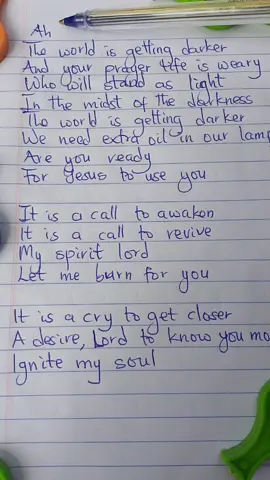 Ah
The world is getting darker
And your prayer life is weary
Who will stand as light
In the midst of the darkness
The world is getting darker
We need extra oil in our lamp
Are you ready
For Jesus to use you
It is a call to awaken
It is a call to revive
My spirit lord
Let me burn for you
It is a cry to get closer
A desire, Lord to know you mo
Ignite my soul